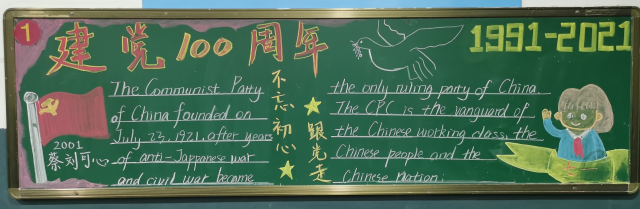 1
建党100周年
1991-2021
The Communist Party
of China founded on
July 23, 1921, after years
of anti-Jappanese war
and civil war became
不忘初心
跟党走
the only ruling party of China
The CPC is the vanguard of
the Chinese working class, the
Chinese people and the
Chinese nation.
2001
蔡刘可心